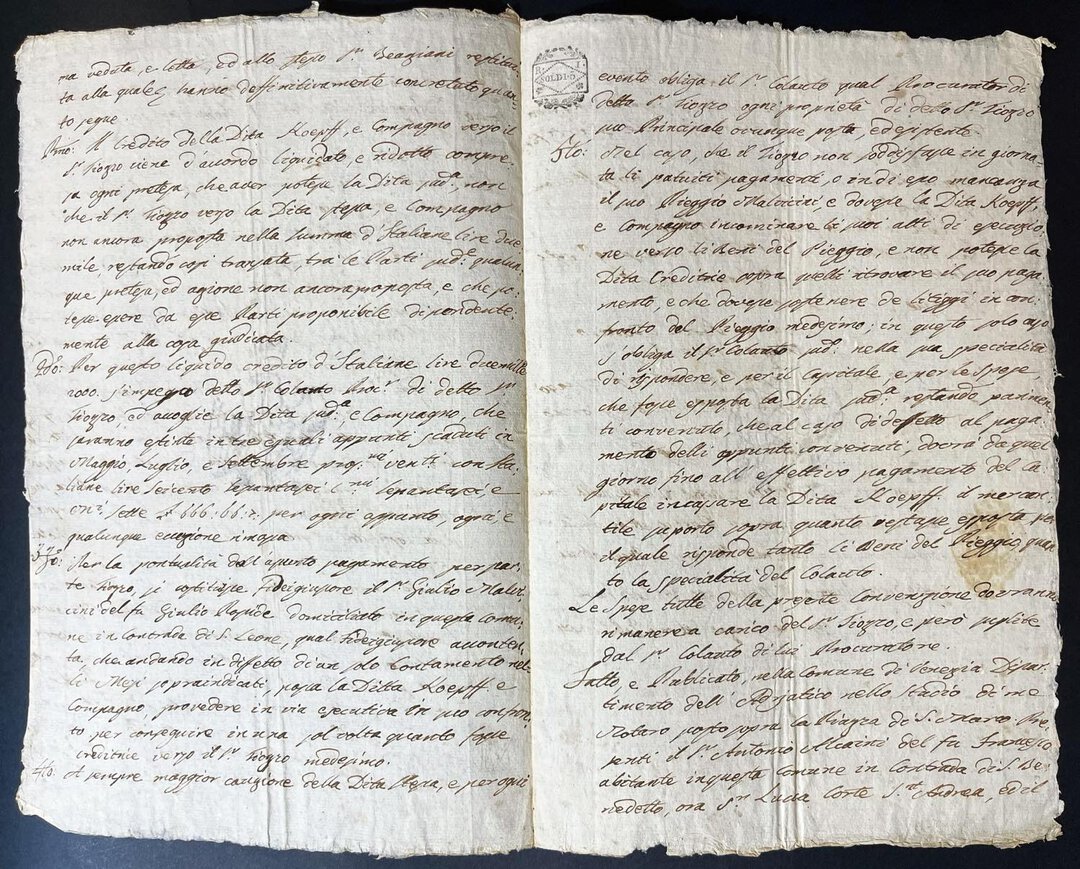 ma veduta, e letta, ed allo stesso Sr. Beaziani restitui
ta alla quale hanno deffinitivamente concretato quan
to segue
Pmo: Il Credito della Dita Koepff, e Compagno verso il
Sr. Fiozzo viene d'accordo liquidato, e ridotto compre
sa ogni pretesa, che aver potesse la Dita sudta. non
che il Sr. Fiozzo verso la Dita stessa, e Compagno
non ancora proposta nella summa d'Italiane lire due
mile, restando così transata, tra le Parti sudte. qualun
que pretesa, ed azione non ancora proposta, e che po
tesse essere da esse Parti proponibile dipendente
mente alla cosa giudicata.
2do: Per questo liquido credito d'Italiane lire duemille
2000. s'impegna detto Sr. Colauto Procr. di detto Sr.
Fiozzo, ed accoglie la Dita sudta, e Compagno, che
saranno estinte in tre eguali appunti scaduti in
Maggio, Luglio, e Settembre prossimi ventri. con Ita
liane lire seicento sepantasei Cmi sepantasei e
sette £ 666:66:7. per ogni appunto, ogni, e
qualunque eccezione rimossa
3zo: Per la pontualità dell'apunto pagamento per par
te Fiozzo, si costituisse Fideigiussore il Sr. Giulio Malvi
cini del fu Giulio domiciliato in questa comu
ne in Contrada di S. Leone, qual Fideigiussore acconten
ta, che andando in diffetto di un solo contamento nel
li Mesi sopraindicati, possa la Ditta Koepff. e
Compagno, provedere in via esecutiva in suo confron
to per conseguire in una sol volta quanto fosse
creditrice verso il Sr. Fiozzo medesimo.
4to: A sempre maggior cauzione della Dita stessa, e per ogni
R. I.
SOLDI 5
evento obliga, il Sr. Colauto qual Procurator di
detta Sr. Fiozzo ogni proprietà di detto Sr. Fiozzo
suo Principale ovunque posta, ed esistente.
5to: Nel caso, che il Fiozzo non soddisfasse in giorna
ta li patuiti pagamenti, o in di esso mancanza
il suo Pieggio Malvicini, e dovesse la Dita Koepff,
e Compagno incominciare li suoi atti di esecuzio
ne verso li Beni del Pieggio, e non potesse la
Dita Creditrice sopra quelli ritrovare il suo paga
mento, e che dovesse sostenere de litiggi in con
fronto del Pieggio medesimo; in questo solo caso
s'obliga il Sr. Colauto sudto. nella sua specialità
di rispondere, e per il Capitale, e per le spese
che fosse esposta la Dita sudta, restando parimen
ti convenuto, che al caso di deffetto al paga
mento delli appunti convenuti, dovrà da quel
giorno fino all'effettivo pagamento del Ca
pitale incassare la Dita Koepff. il mercan
tile suporto sopra quanto restasse esposta per
il quale risponde tanto li Beni del Pieggio, quan
to la specialità del Colauto.
Le Spese tutte della presente Convenzione dovranno
rimanere a carico del Sr. Fiozzo, e però suplite
dal Sr. Colauto di lui Procuratore.
Fatto e Publicato, nella Comune di Venezia Dipar
timento dell'Adriatico nello Studio di me
Notaro posto sopra la Piazza di S. Marco Pre
senti il Sr. Antonio Alcaini del fu Francesco
abitante in questa Comune in Contrada di S. Be
nedetto, ora Sn. Lucca Corte S.t Andrea, ed il